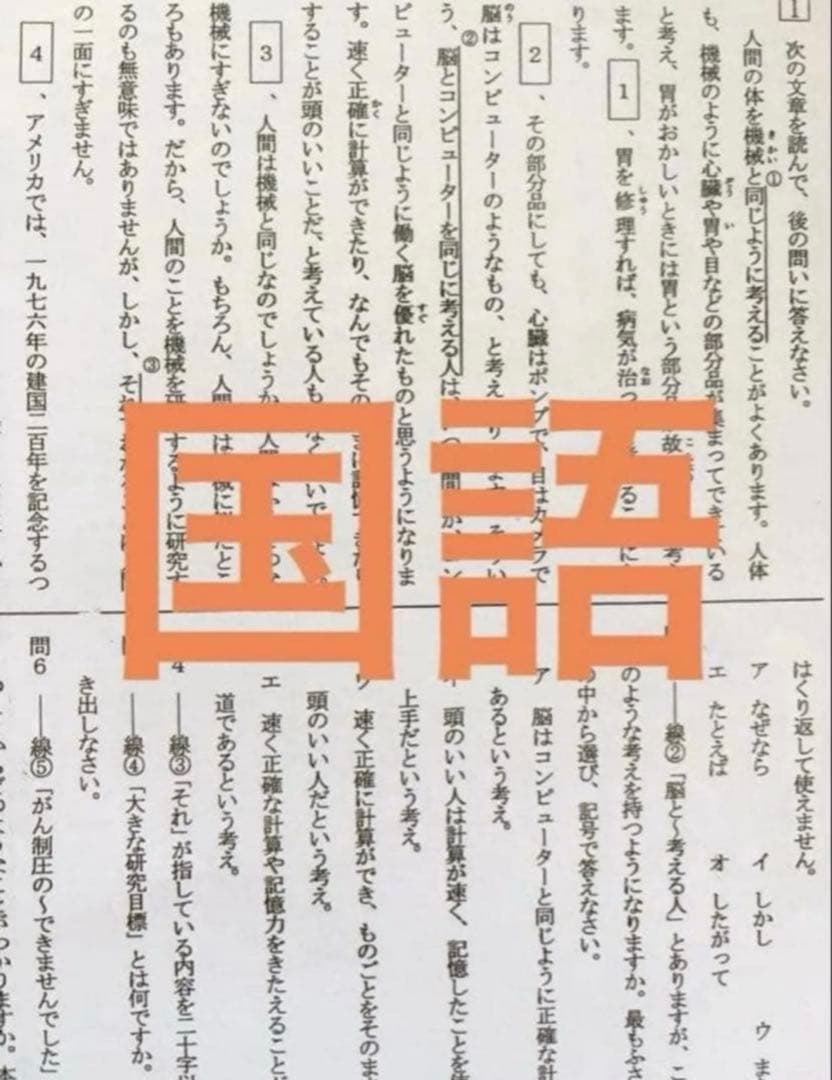 国語
1 次の文章を読んで、後の問いに答えなさい。
人間の体を機械と同じように考えることがよくあります。人体
も、機械のように心臓や胃や目などの部分品が集まってできている
と考え、胃がおかしいときには胃という部分品
ます。 1 、胃を修理すれば、病気が治っ
ります。
2 、その部分品にしても、心臓はポンプで、目はカメラで
脳はコンピューターのようなもの、と考え
う、脳とコンピューターを同じに考える人は、
ピューターと同じように働く脳を優れたものと思うようになりま
す。速く正確に計算ができたり、なんでもその
することが頭のいいことだ、と考えている人も
3 、人間は機械と同じなのでしょうか。
機械にすぎないのでしょうか。もちろん、人間
ろもあります。だから、人間のことを機械を研究するように研究す
るのも無意味ではありませんが、しかし、それ
の一面にすぎません。
4 、アメリカでは、一九七六年の建国二百年を記念するつ
はくり返して使えません。
ア なぜなら イ しかし ウ ま
エ たとえば オ したがって
線②「脳と〜考える人」とありますが、こ
のような考えを持つようになりますか。最もふさ
の中から選び、記号で答えなさい。
ア 脳はコンピューターと同じように正確な計
あるという考え。
イ 頭のいい人は計算が速く、記憶したことを
上手だという考え。
ウ 速く正確に計算ができ、ものごとをそのま
頭のいい人だという考え。
エ 速く正確な計算や記憶力をきたえること
道であるという考え。
4 ──線③「それ」が指している内容を二十字
──線④「大きな研究目標」とは何ですか。
き出しなさい。
問6 ──線⑤「がん制圧の〜できませんでした」